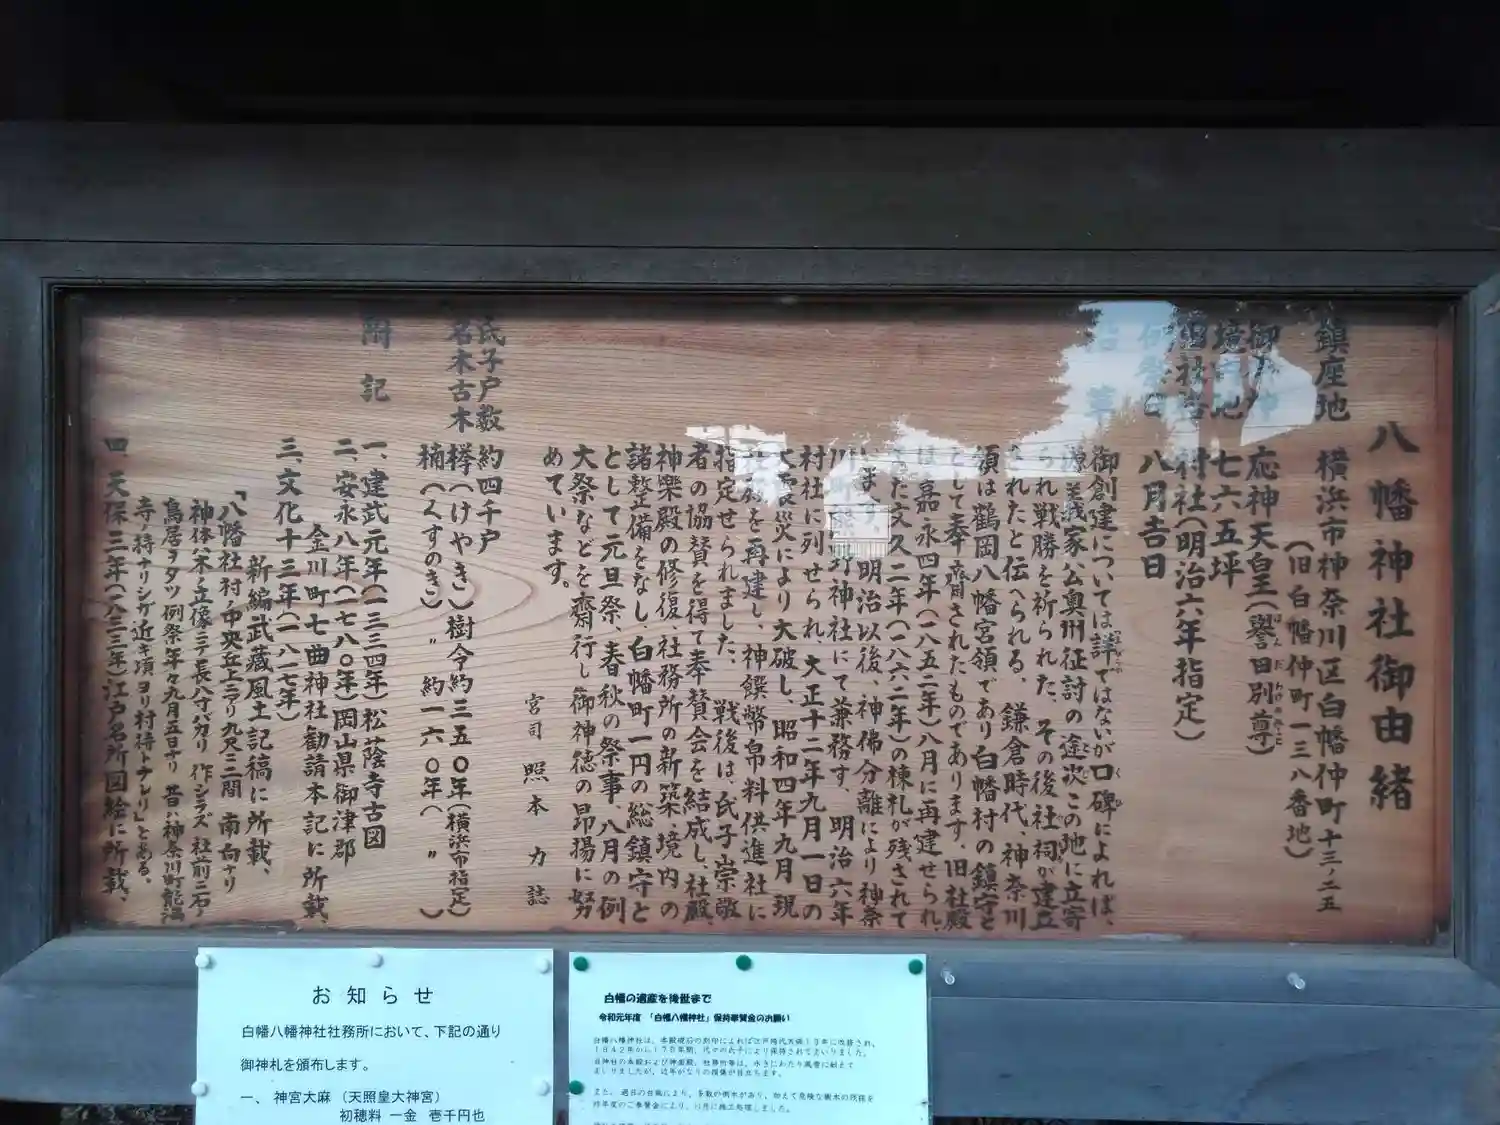 八幡神社御由緒
鎮座地 横浜市神奈川区白幡仲町十三ノ二五
(旧白幡仲町一三八番地)
御祭神 応神天皇(誉田別尊)
境内地 七六五坪
旧社格 村社(明治六年指定)
例祭日 八月吉日
沿革 御創建については詳ではないが口碑によれば、
源義家公奥州征討の途次この地に立寄
られ戦勝を祈られた。その後社祠が建立
されたと伝へられる。鎌倉時代、神奈川
領は鶴岡八幡宮領であり白幡村の鎮守と
として奉齋されたものであります。旧社殿
は嘉永四年(一八五二年)八月に再建せられ、
また文久二年(一八六二年)の棟札が残されて
います。明治以後、神佛分離により神奈
川町熊野神社にて兼務す、明治六年
村社に列せられ、大正十二年九月一日の
大震災により大破し、昭和四年九月現
社殿を再建し、神饌幣帛料供進社に
指定せられました。戦後は、氏子崇敬
者の協賛を得て奉賛会を結成し、社殿、
神樂殿の修復、社務所の新築、境内の
諸整備をなし、白幡町一円の総鎮守と
として元旦祭、春秋の祭事、八月の例
大祭などを齋行し御神徳の昂揚に努
めています。
宮司 照本 力 誌
氏子戸数 約四千戸
名木古木 欅(けやき)樹令約三五〇年(横浜市指定)
楠(くすのき) 〃 約一六〇年( 〃 )
附記 一、建武元年(一三三四年)松蔭寺古図
二、安永八年(一七八〇年)岡山県御津郡
金川町七曲神社勧請本記に所載、
三、文化十三年(一八一七年)
新編武蔵風土記稿に所載、
「八幡社 村ノ中央丘上ニアリ九尺ニ三間 南向ナリ
神体木ノ立像ニテ長八寸バガリ 作シラズ 社前ニ石ノ
鳥居ヲタツ例祭年々九月五日ナリ 昔ハ神奈川町能満
寺ノ持ナリシガ近キ頃ヨリ村持トナレリ」とある、
四、天保三年(一八三三年)江戸名所図絵に所載、
お知らせ
白幡八幡神社社務所において、下記の通り
御神札を頒布します。
一、 神宮大麻 (天照皇大神宮)
初穂料 一金 壱千円也
白幡の遺産を後世まで
令和元年度 「白幡八幡神社」保持奉賛金のお願い